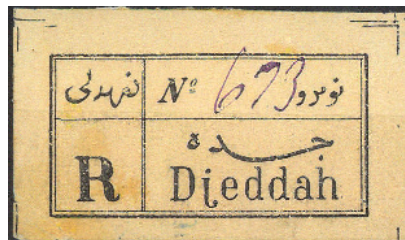 تعهدلی Nº 673 نومرو
جده
R Djeddah